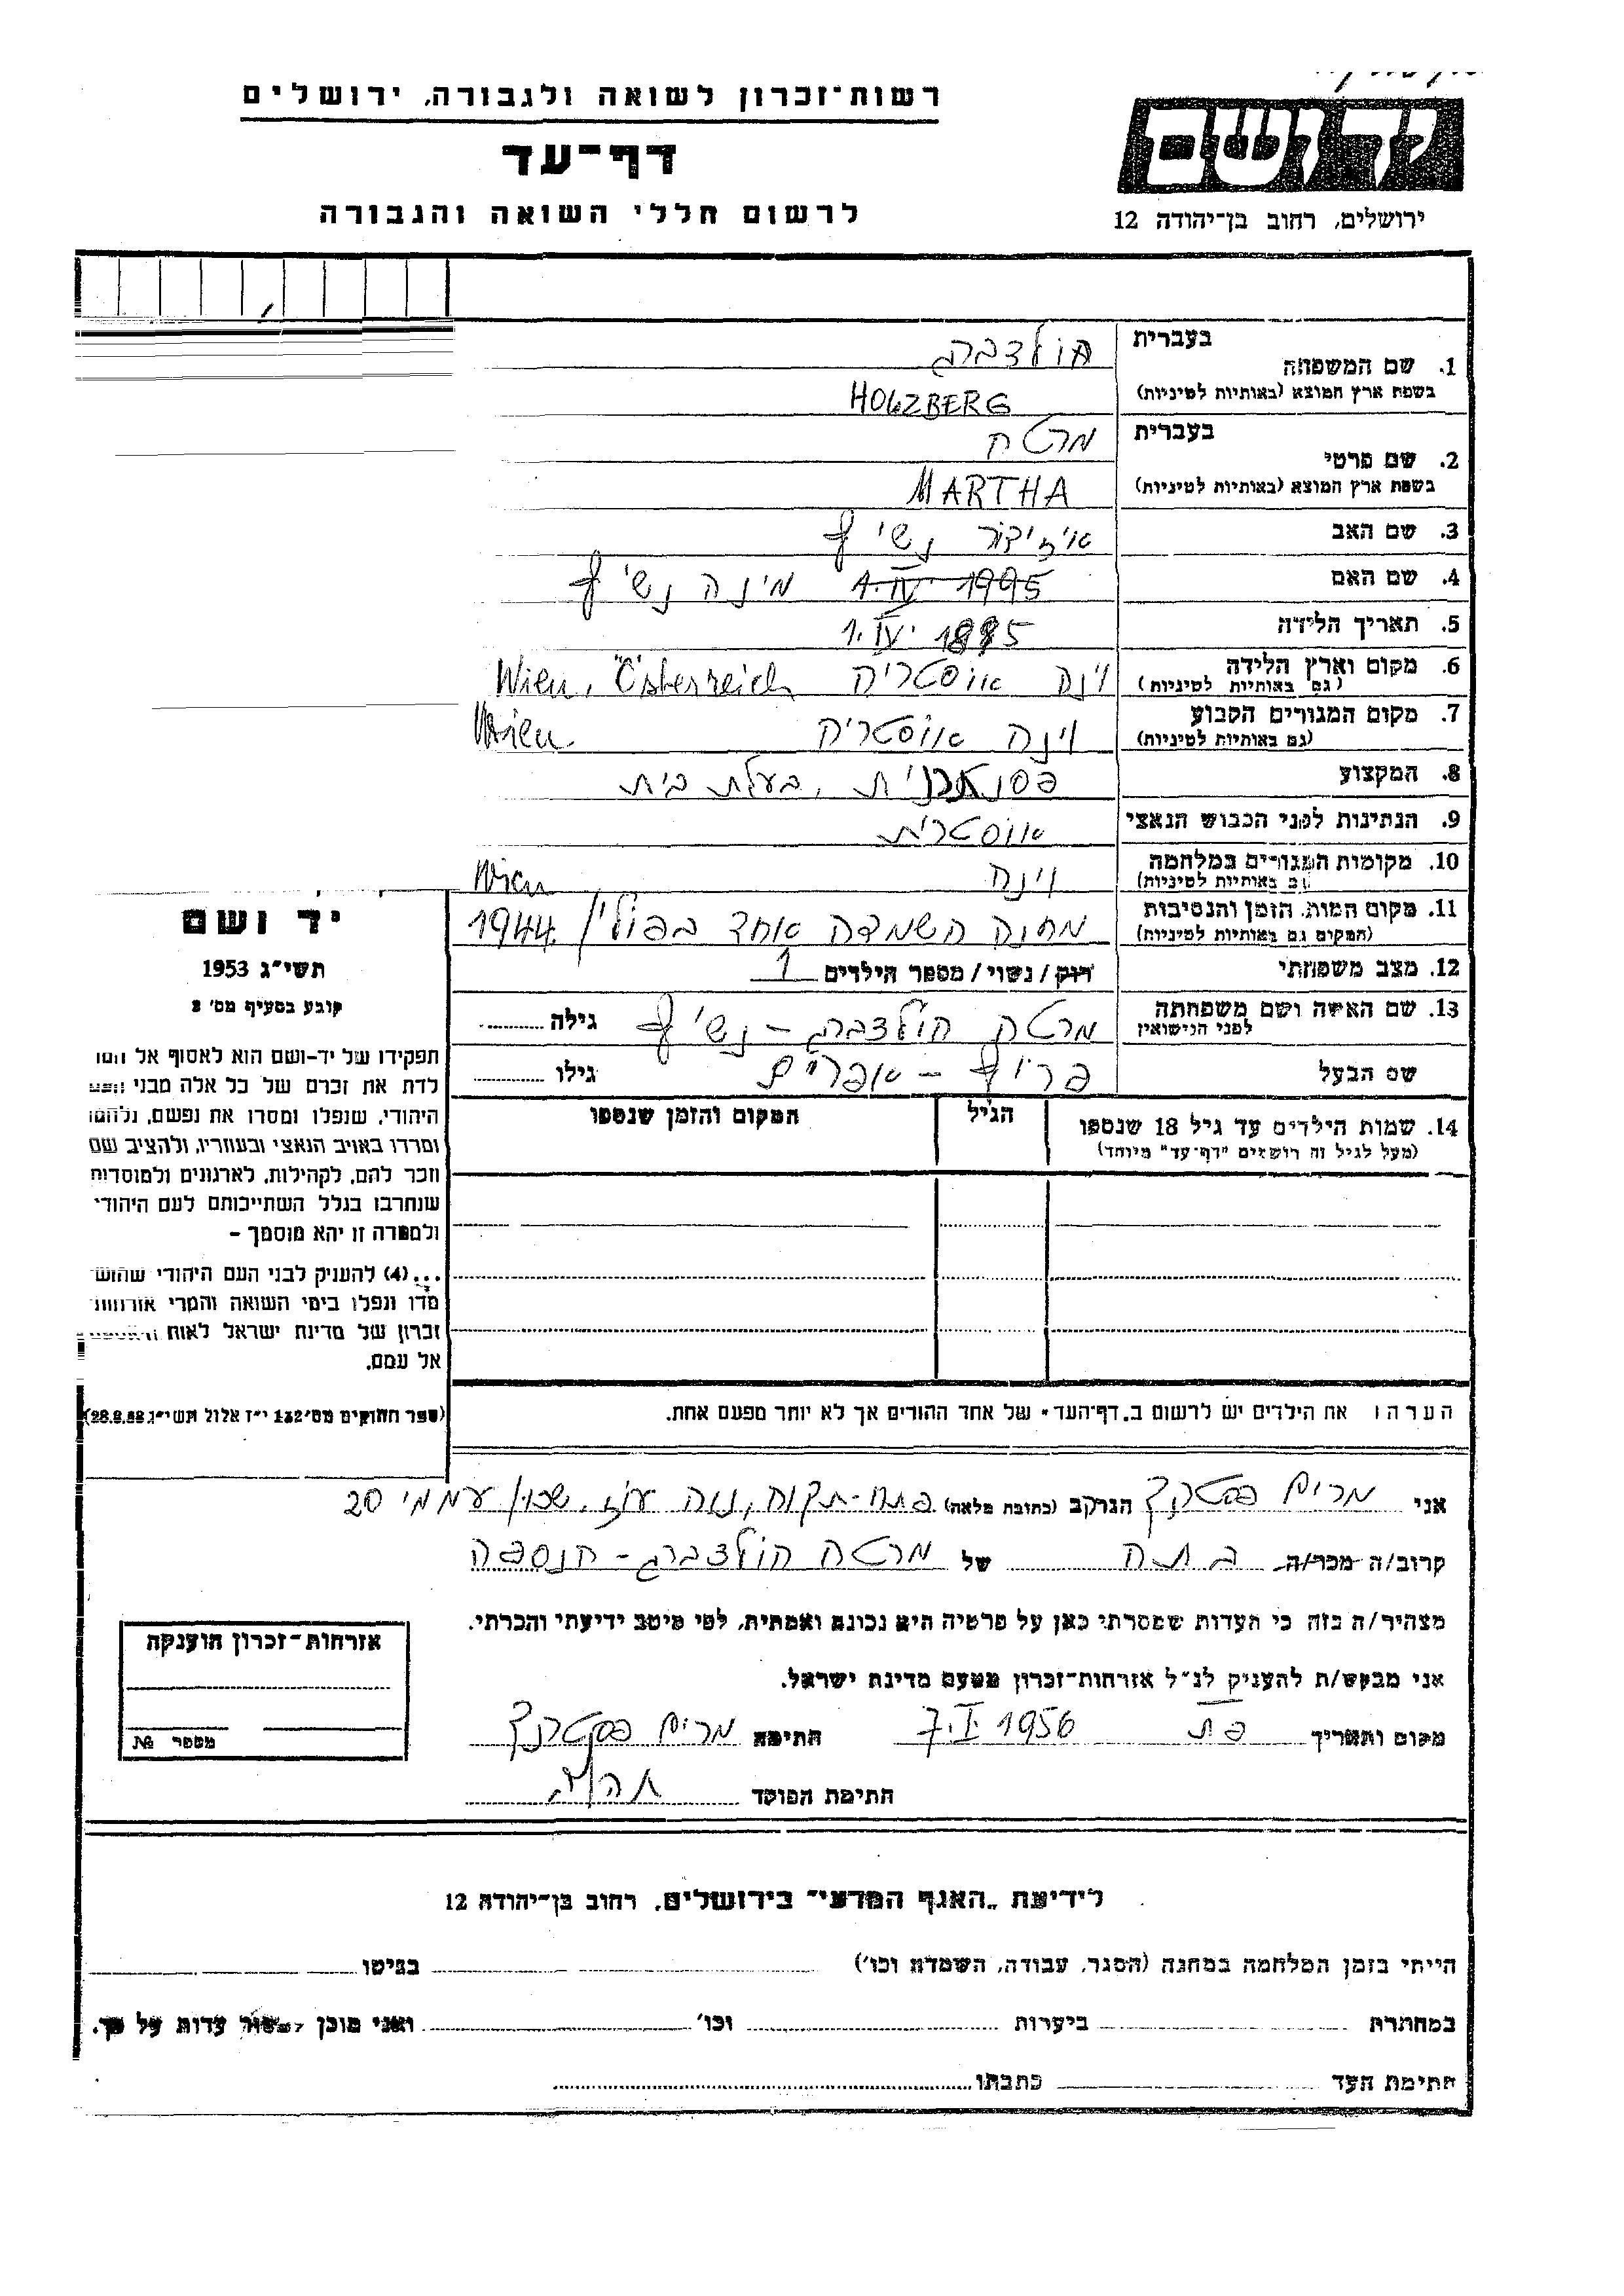 רשות-זכרון לשואה ולגבורה, ירושלים
דף-עד
לרשום חללי השואה והגבורה
יד ושם
ירושלים, רחוב בן-יהודה 12
1. שם המשפחה בעברית הולצברג
בשפת ארץ המוצא (באותיות לטיניות) HOLZBERG
2. שם פרטי בעברית מרטה
בשפת ארץ המוצא (באותיות לטיניות) MARTHA
3. שם האב איזידור נשיץ
4. שם האם 1.IV 1995 מינה נשיץ
5. תאריך הלידה 1.IV 1885
6. מקום וארץ הלידה (גם באותיות לטיניות) וינה אוסטריה Wien, Österreich
7. מקום המגורים הקבוע (גם באותיות לטיניות) וינה אוסטריה Wien
8. המקצוע בעלת בית
9. הנתינות לפני הכבוש הנאצי אוסטרית
10. מקומות המגורים במלחמה (גם באותיות לטיניות) וינה Wien
11. מקום המות, הזמן והנסיבות (המקום גם באותיות לטיניות) מחנה השמדה אחד בפולין 1944
12. מצב משפחתי רוק/נשוי/מספר הילדים 1
13. שם האשה ושם משפחתה לפני הנישואין מרטה הולצברג - נשיץ גילה
שם הבעל אפרים גילו
14. שמות הילדים עד גיל 18 שנספו הגיל המקום והזמן שנספו
(מעל לגיל זה רושמים "דף-עד" מיוחד)
הערה: את הילדים יש לרשום ב"דף-העד" של אחד ההורים אך לא יותר מפעם אחת.
יד ושם
תשי"ג 1953
קובע בסעיף מס' 2
תפקידו של יד-ושם הוא לאסוף אל
לדת את זכרם של כל אלה מבני
היהודי, שנפלו ומסרו את נפשם, נלחמו
ומרדו באויב הנאצי ובעוזריו, ולהציב שם
וזכר להם, לקהילות, לארגונים ולמוסדות
שנחרבו בגלל השתייכותם לעם היהודי
ולמטרה זו יהא מוסמך -
...(4) להעניק לבני העם היהודי שהוש
מדו ונפלו בימי השואה והמרי אזרחות
זכרון של מדינת ישראל לאות
אל עמם.
(ספר החוקים מס' 132 י"ז אלול תשי"ג
אני מרים הגר/ה ב (כתובת מלאה) פתח-תקוה, נוה עוז, שכון עממי 20
קרוב/ה מכר/ה בתה של מרטה הולצברג - הנספה
מצהיר/ה בזה כי העדות שמסרתי כאן על פרטיה היא נכונה ואמתית, לפי מיטב ידיעתי והכרתי.
אני מבקש/ת להעניק לנ"ל אזרחות-זכרון מטעם מדינת ישראל.
מקום ותאריך פ"ת 7.I.1956 חתימה מרים
חתימת הפוקד
אזרחות-זכרון הוענקה
מספר №
לידיעת "האגף המדעי" בירושלים, רחוב בן-יהודה 12
הייתי בזמן המלחמה במחנה (הסגר, עבודה, השמדה וכו') בגיטו
במחתרת ביערות וכו' ואני מוכן למסור עדות על כך.
חתימת העד כתבתו